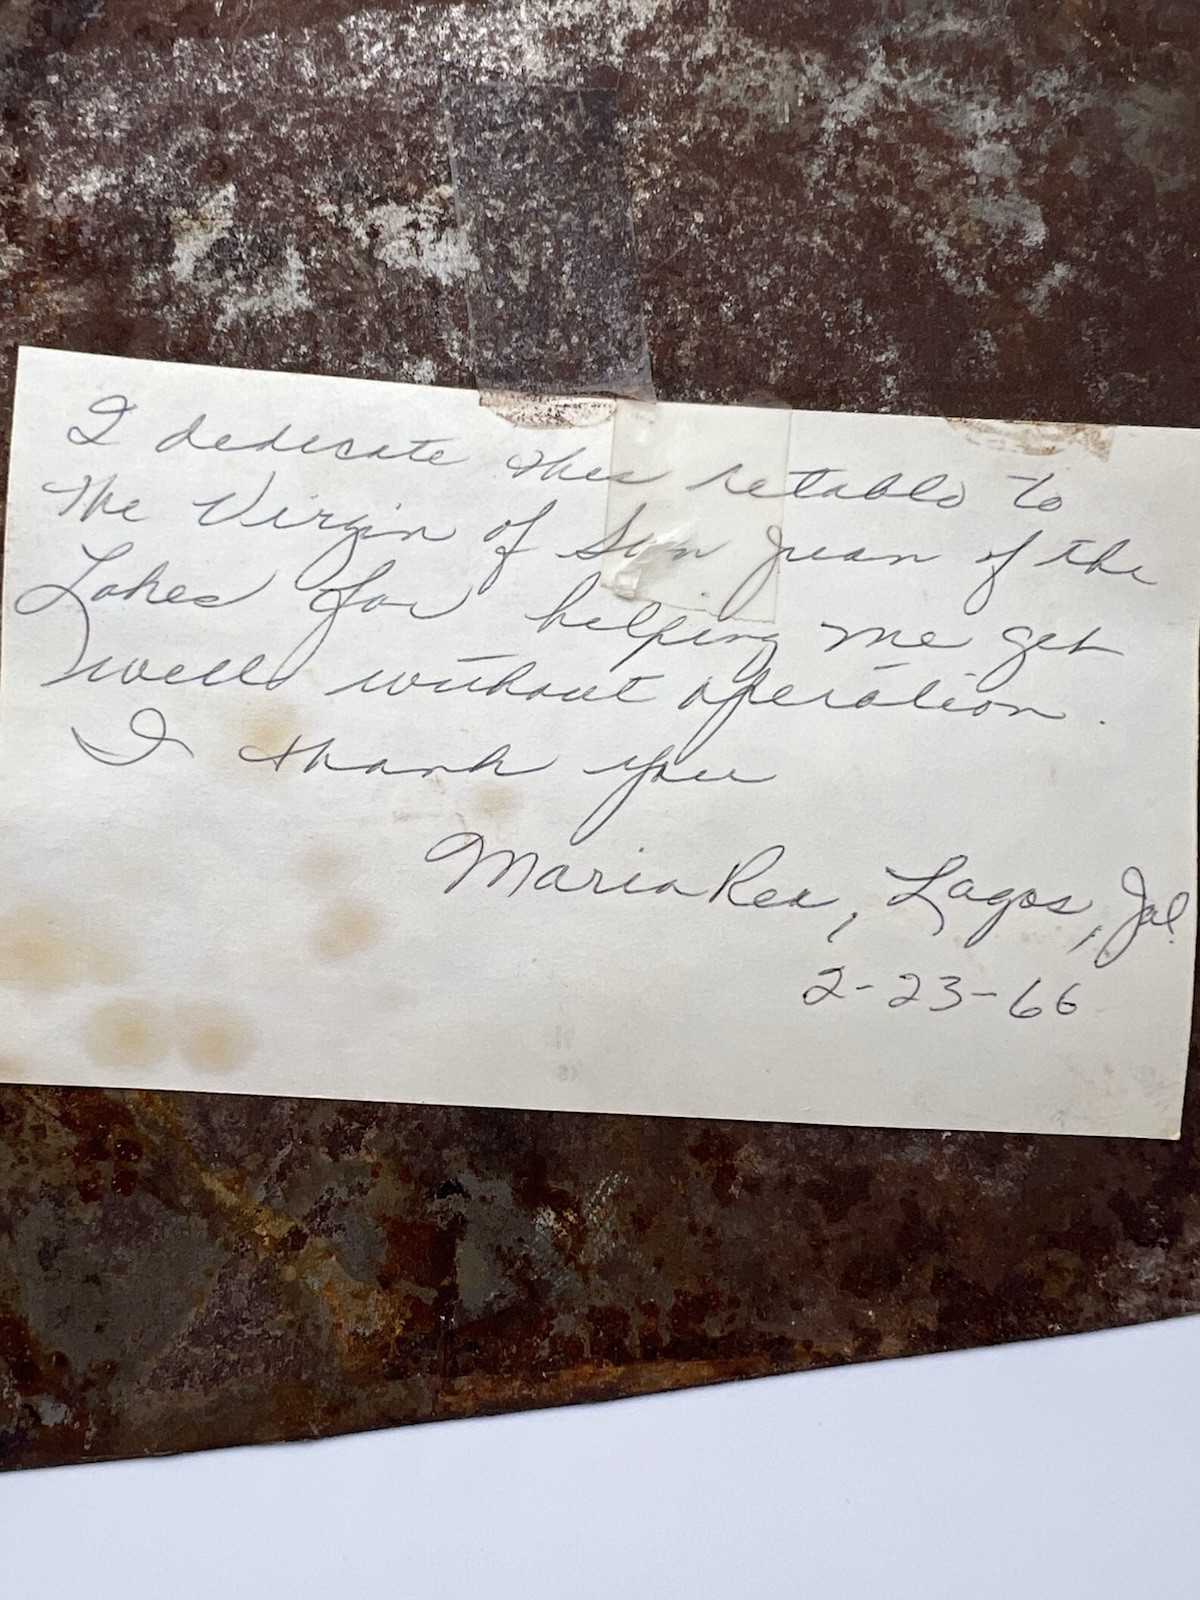 I dedicate this retablo to
the Virgin of San Juan of the
Lakes for helping me get
well without operation.
I thank you
Maria Rea, Lagos, Jal.
2-23-66